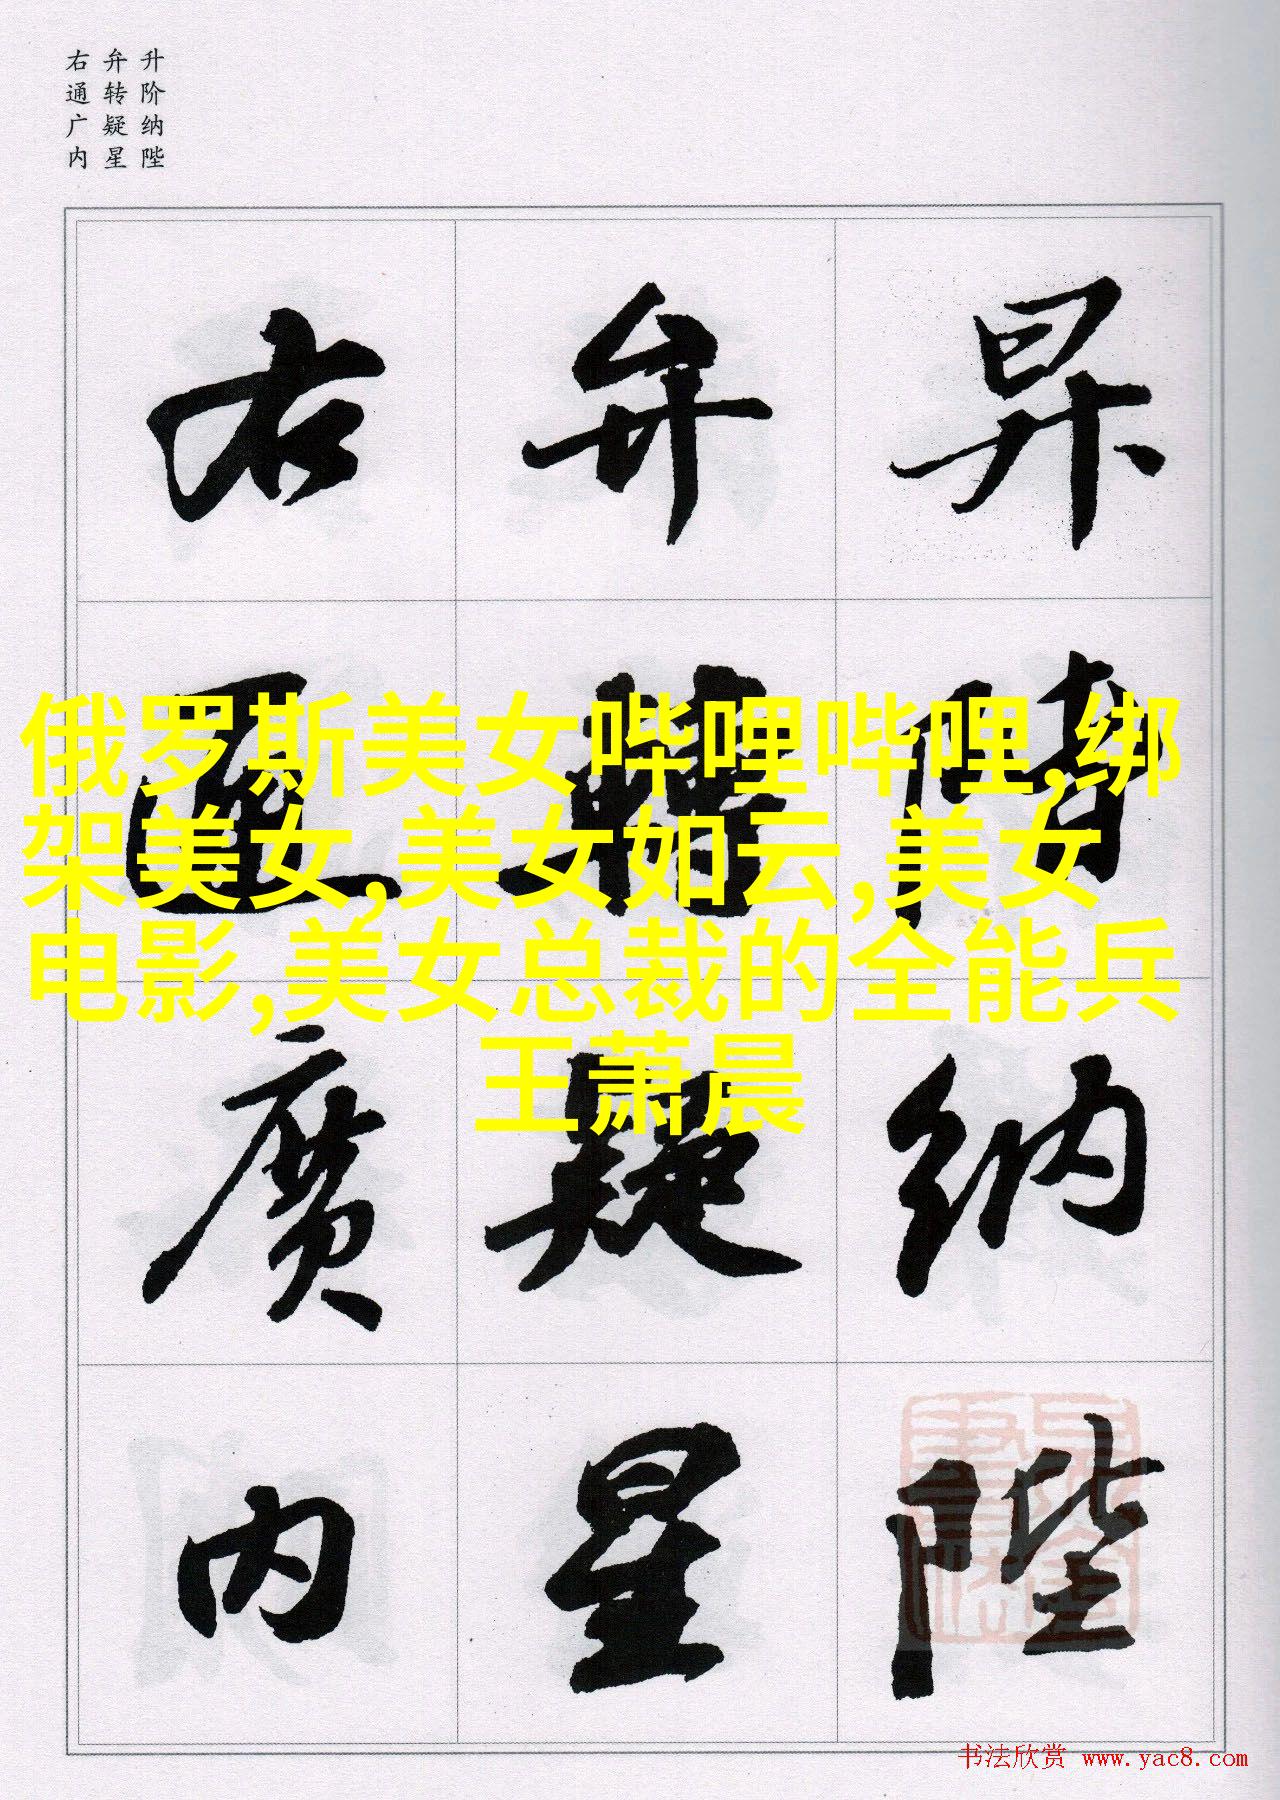 升阶纳陛
弁转疑星
右通广内
昇階納陛
弁轉疑星
右通廣內
俄罗斯美女哔哩哔哩,绑
架美女,美女如云,美女
电影,美女总裁的全能兵
王萧晨
书法欣赏 www.yac8.com